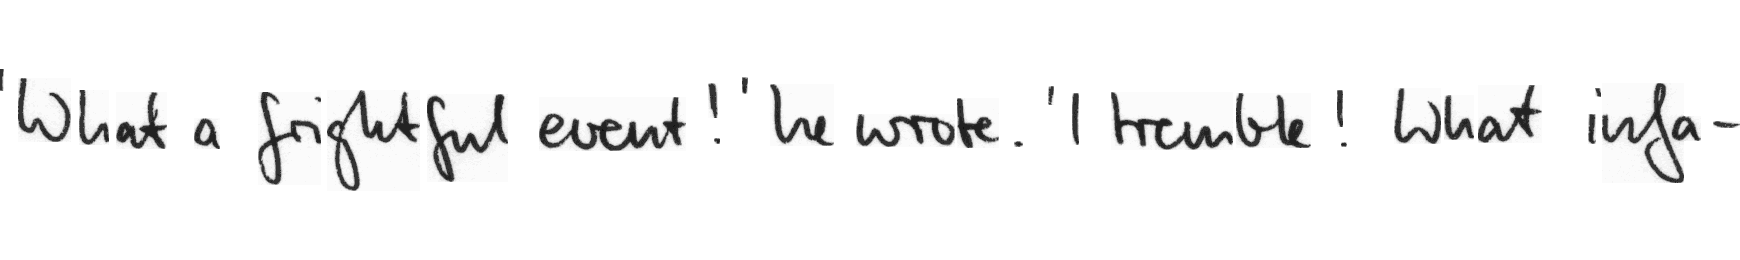 'What a frightful event!' he wrote. 'I tremble! What infa-